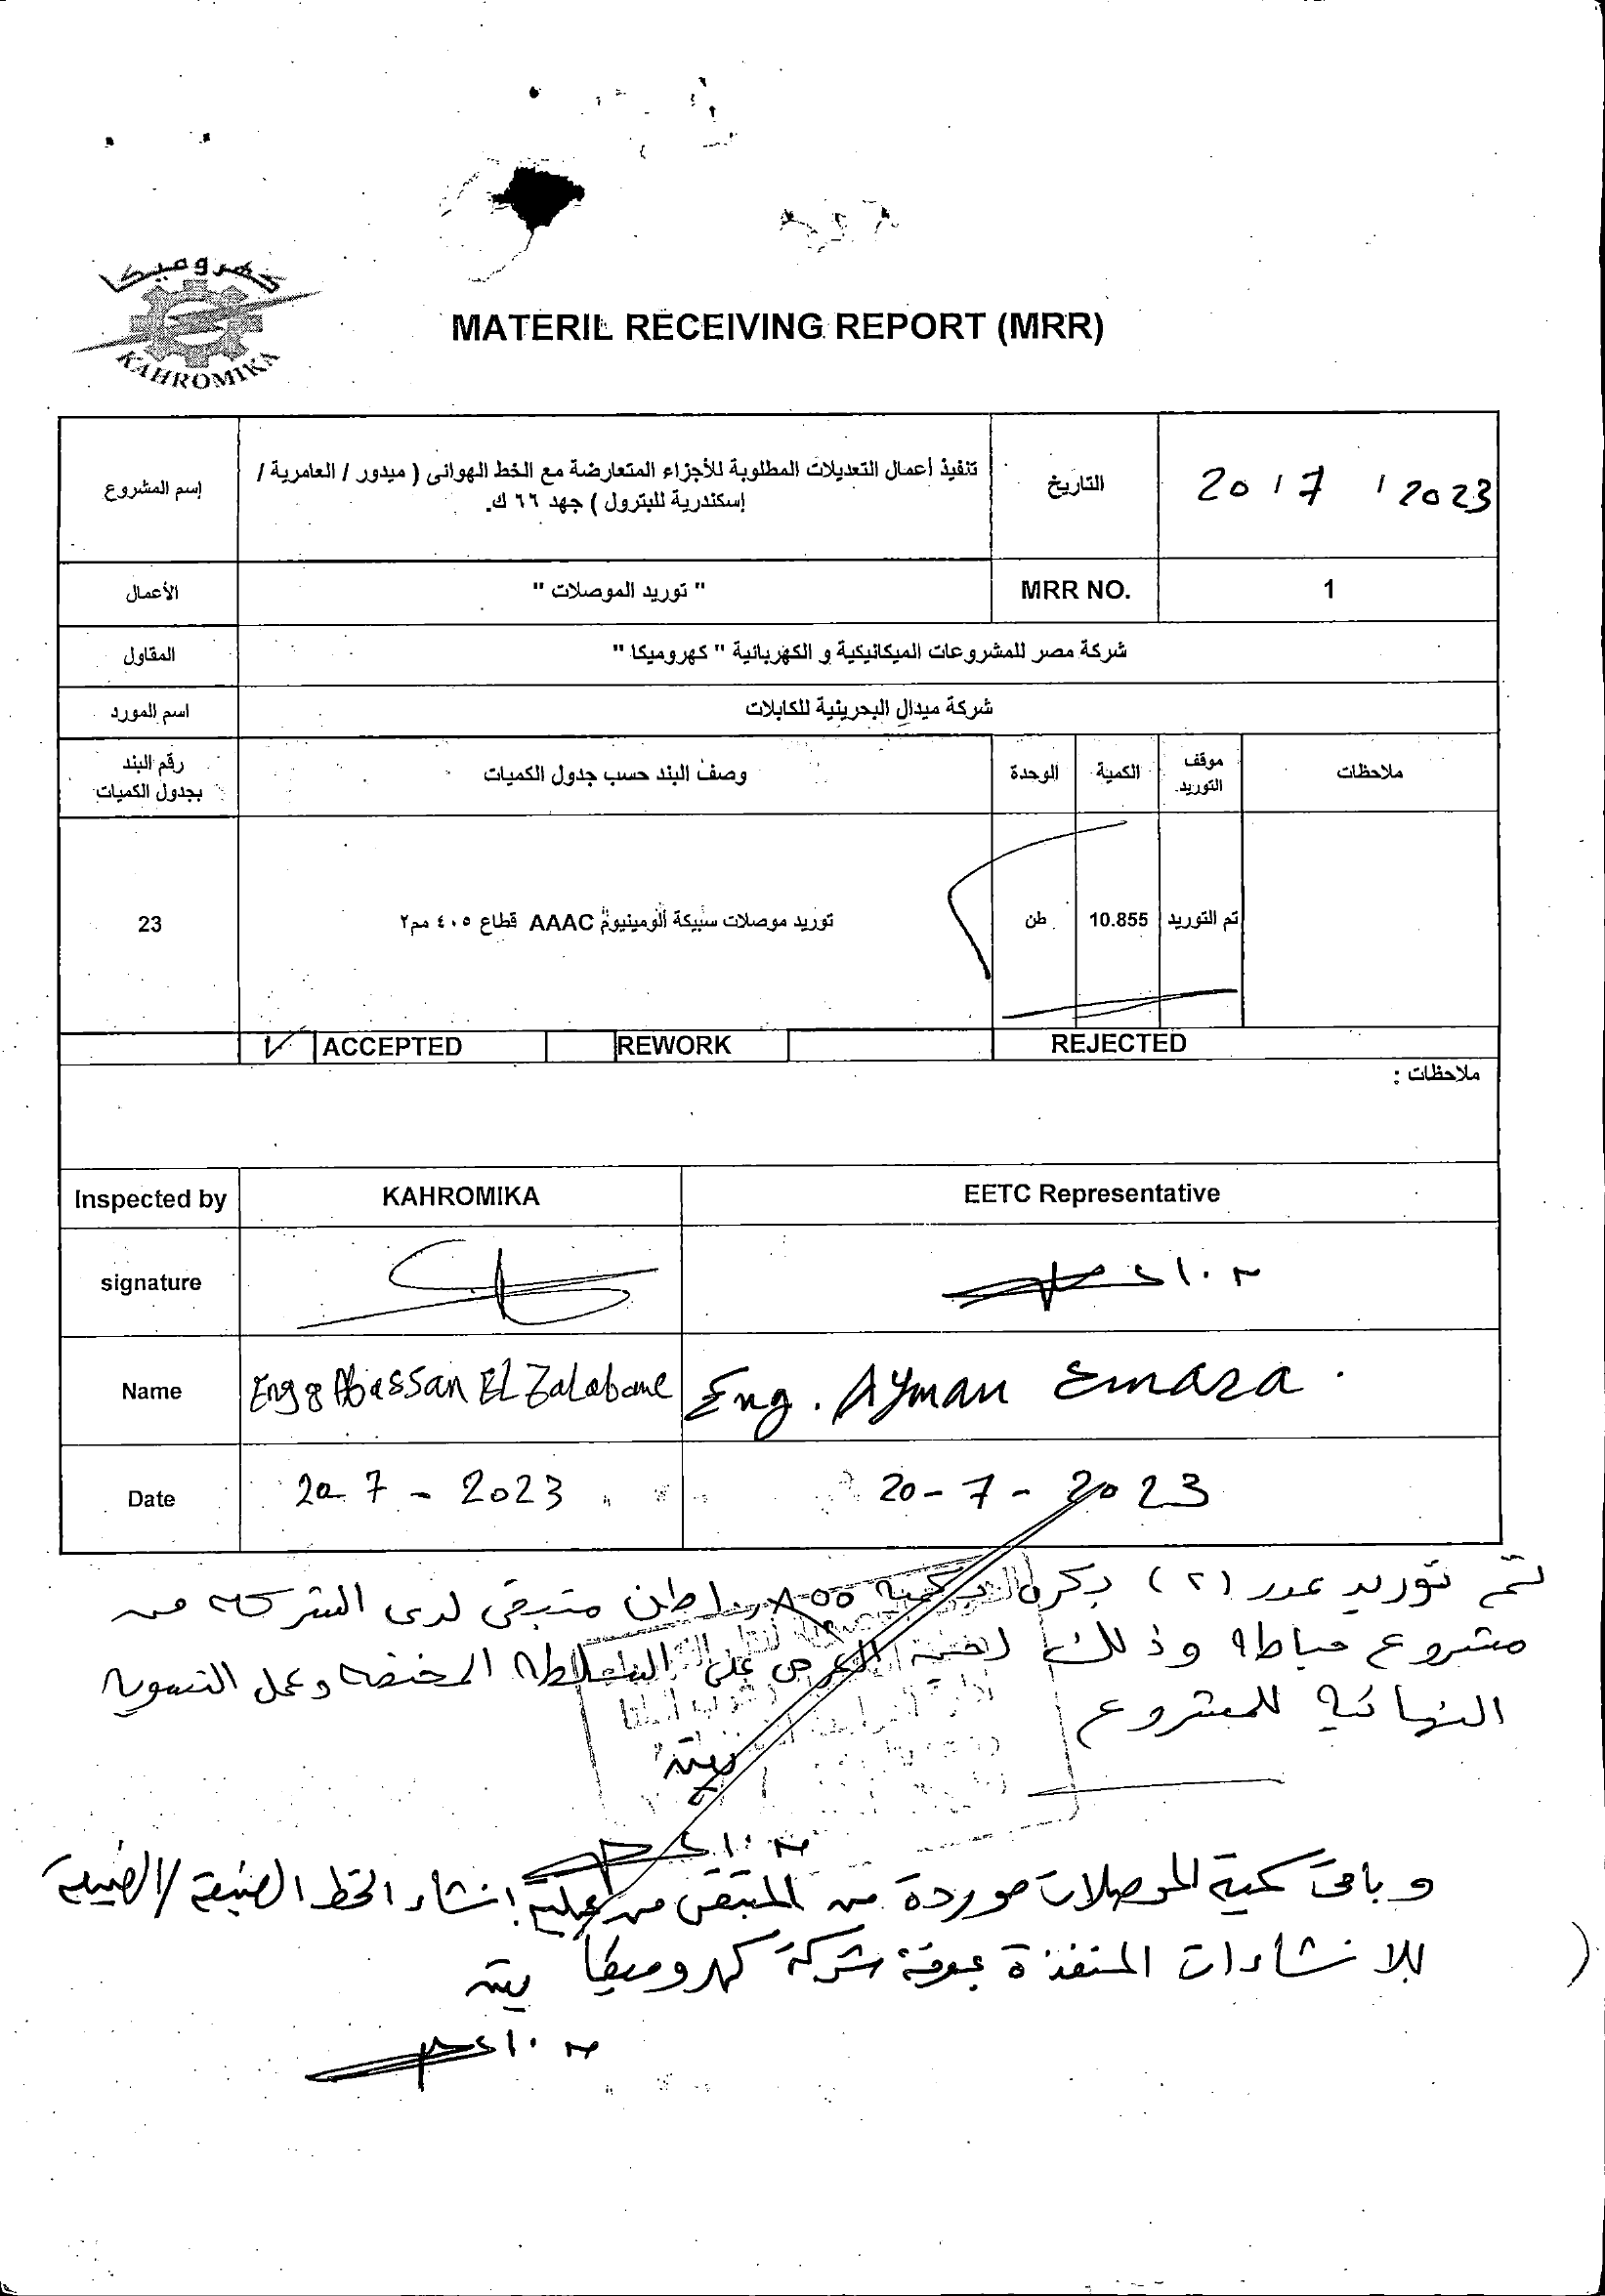 كهروميكا
KAHROMIKA
MATERIL RECEIVING REPORT (MRR)
إسم المشروع
تنفيذ أعمال التعديلات المطلوبة للأجزاء المتعارضة مع الخط الهوائى ( ميدور / العامرية /
إسكندرية للبترول ) جهد ٦٦ ك.
التاريخ
20 / 7 / 2023
الأعمال
" توريد الموصلات "
MRR NO.
1
المقاول
شركة مصر للمشروعات الميكانيكية و الكهربائية " كهروميكا "
اسم المورد
شركة ميدال البحرينية للكابلات
رقم البند
بجدول الكميات
وصف البند حسب جدول الكميات
الوحدة
الكمية
موقف
التوريد
ملاحظات
23
توريد موصلات سبيكة ألومينيوم AAAC قطاع ٤٠٥ مم٢
طن
10.855
تم التوريد
ACCEPTED
REWORK
REJECTED
ملاحظات :
Inspected by
KAHROMIKA
EETC Representative
signature
Name
Eng. Ayman Emara.
Date
20-7-2023
20-7-2023
تم توريد عدد (٢) بكرة طن متبقى لدى الشركة من
مشروع وذلك لحين العرض على السلطة المختصه وعمل التسويه
النهائية للمشروع
و باقى كمية الموصلات موردة من المتبقى من عملية إنشاء الخط
للانشاءات المنفذة بمعرفة شركة كهروميكا